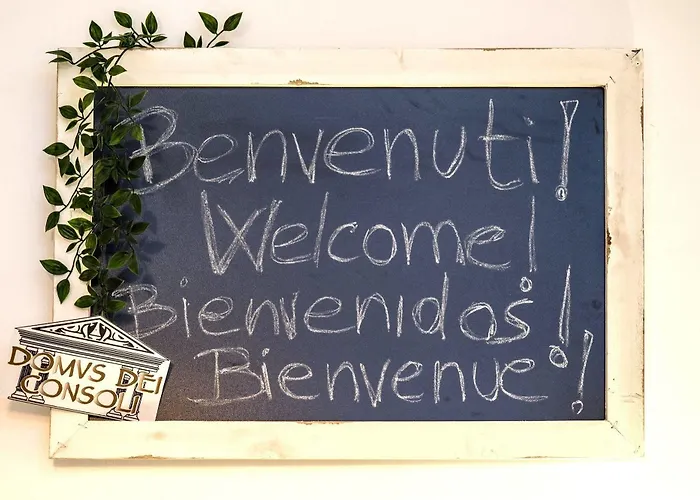 Benvenuti!
Welcome!
Bienvenidos!
Bienvenue!
DOMVS DEI
CONSOLI